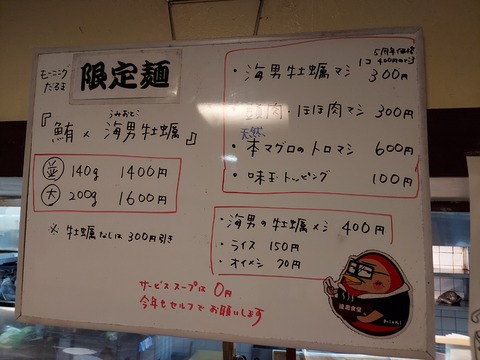 モーニング
だるま
限定麺
うみおとこ
『鮪×海男牡蠣』
並 140g 1400円
大 200g 1600円
※ 牡蠣なしは300円引き
5周年価格
1コ 400円のところ
・海男牡蠣マシ 300円
・頭肉・ほほ肉マシ 300円
天然
・本マグロのトロマシ 600円
・味玉トッピング 100円
・海男の牡蠣メシ 400円
・ライス 150円
・オイメシ 70円
サービススープは 0円
今年もセルフでお願いします